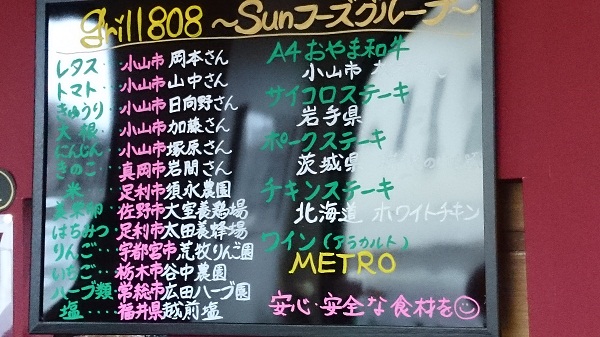 grill808 ～Sunフーズグループ～
レタス・・・小山市 岡本さん
トマト・・・小山市 山中さん
きゅうり・・小山市 日向野さん
大根・・・小山市 加藤さん
にんじん・・小山市 塚原さん
きのこ・・・真岡市 岩間さん
米・・・足利市 須永農園
美葉卵・・佐野市 大室養鶏場
はちみつ・・足利市 太田養蜂場
りんご・・・宇都宮市 荒牧りんご園
いちご・・・栃木市 谷中農園
ハーブ類・・常総市 広田ハーブ園
塩・・・福井県 越前塩
A4おやま和牛
小山市
サイコロステーキ
岩手県
ポークステーキ
茨城県
チキンステーキ
北海道 ホワイトチキン
ワイン(アラカルト)
METRO
安心・安全な食材を